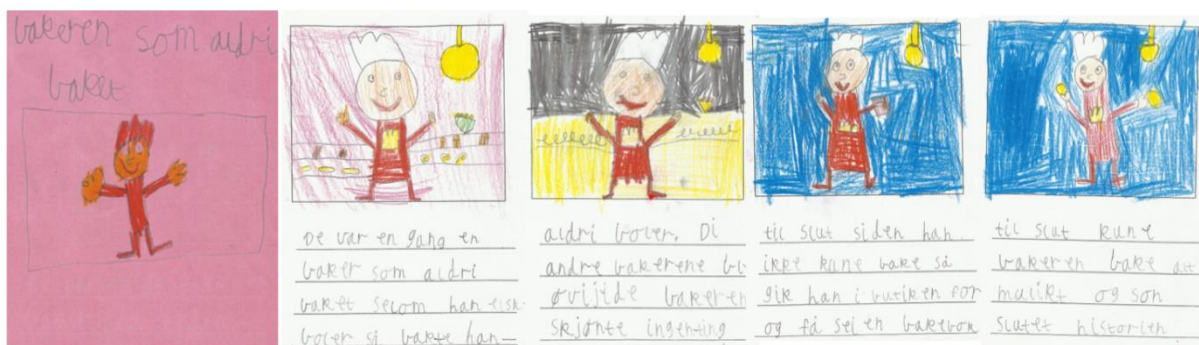 bakeren som aldri
baket
De var en gang en
baker som aldri
baket selom han elsk-
boler så bakte han-
aldri boler. Di
andre bakerene bl
øvijlde bakeren
skjønte ingenting
til slut siden han
ikke kune bake så
gik han i butiken for
og få sei en bakebok
til slut kune
bakeren bake alt
mulikt og son
slutet historien